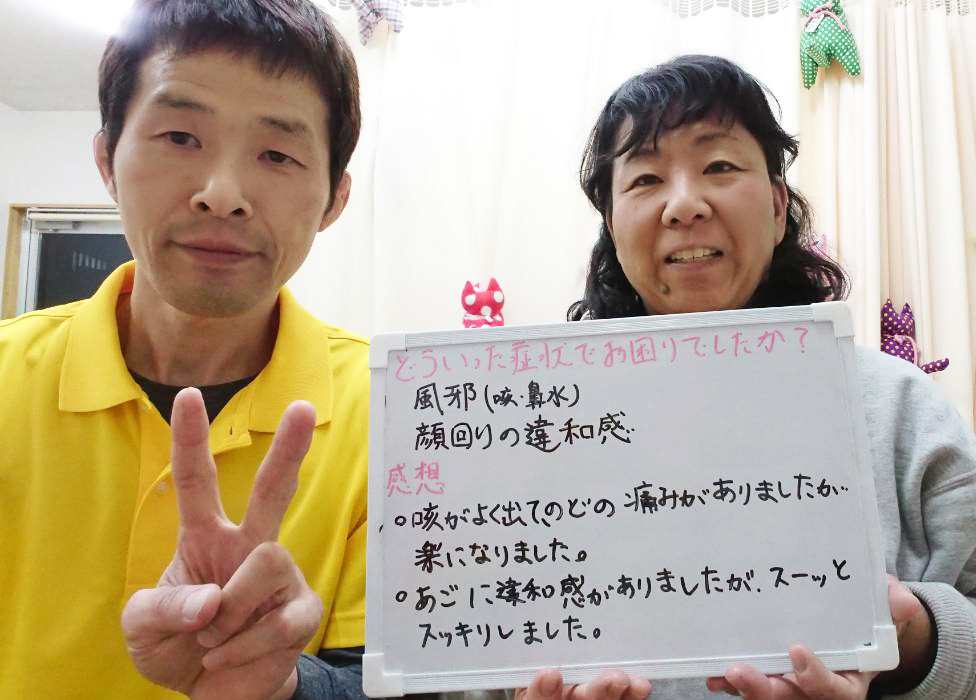 どういった症状でお困りでしたか?
風邪(咳・鼻水)
顔回りの違和感
感想
○咳がよく出て、のどの痛みがありましたが
楽になりました。
○あごに違和感がありましたが、スーッと
スッキリしました。